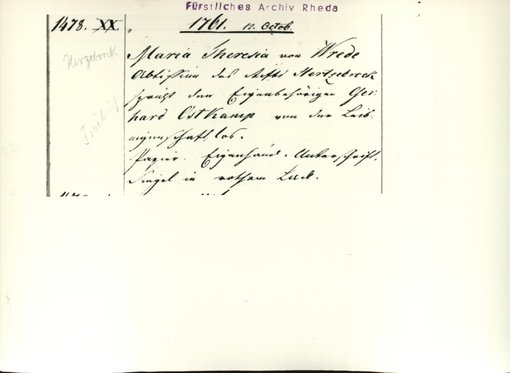 Fürstliches Archiv Rheda
1478. XX. 1761. 10. Octob.
Herzebrock
Maria Theresia von Wrede
Abtissin des Stifts Hertzebrock
spricht den Eigenbehörigen Ger-
hard Ostkamp von der Leib-
eigenschaft los.
Papier. Eigenhänd. Unterschrift.
Siegel in rothem Lack.